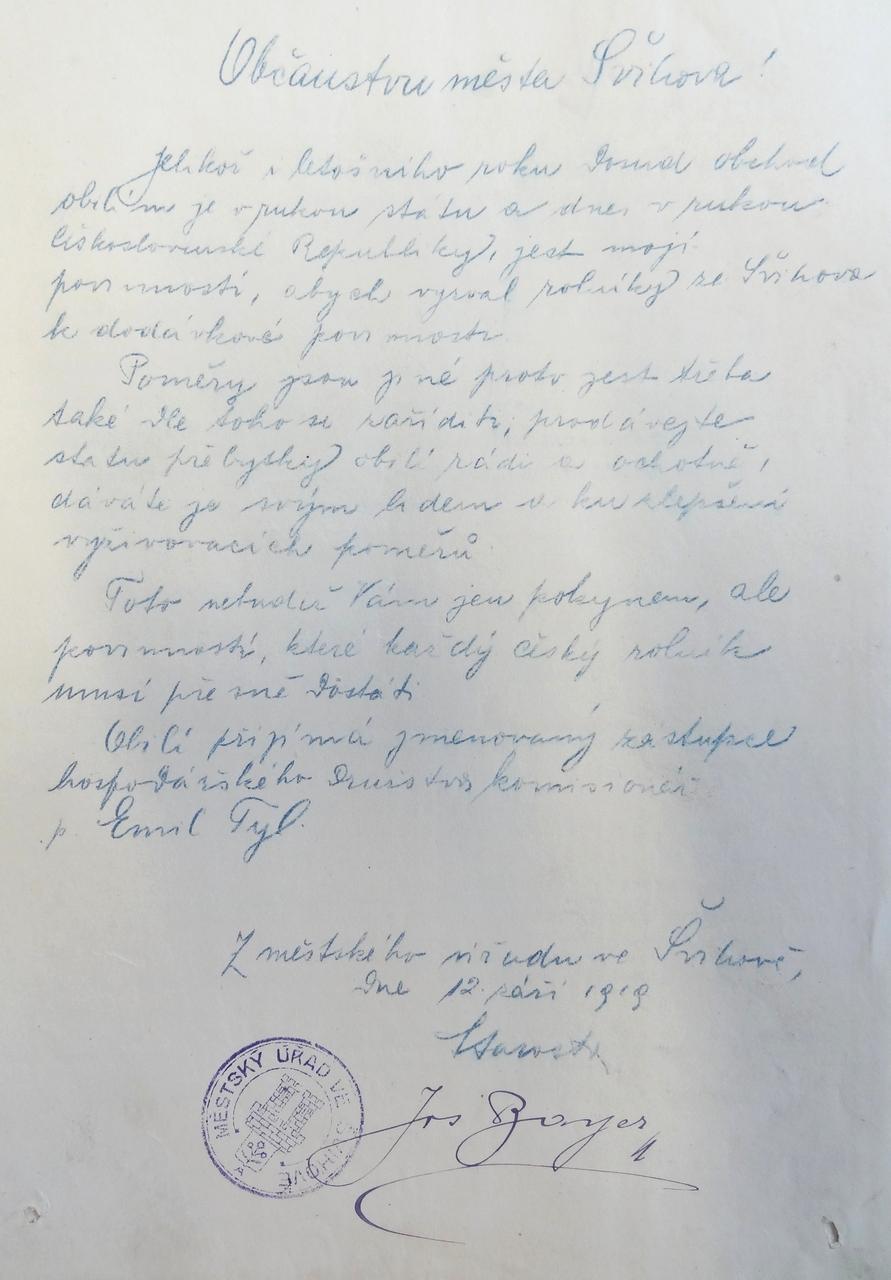 Občanstvu města Švihova!
Jelikož i letošního roku Dosud obchod
obilím je v rukou státu a dnes v rukou
Československé Republiky, jest mojí
povinností, abych vyzval rolníky ze Švihova
k dodávkové povinnosti.
Poměry jsou jiné proto jest třeba
také dle toho se zaříditi, prodávejte
státu přebytky obilí rádi a ochotně,
dáváte je svým lidem a ku zlepšení
vyživovacích poměrů.
Toto nebudiž Vám jen pokynem, ale
povinností, které každý český rolník
musí přesně Dostáti.
Obilí přijímá jmenovaný zástupce
hospodářského Družstva komisionář
p. Emil Tyl.
Z městského úřadu ve Švihově,
Dne 12. září 1919
Starosta
Jos Bayer
MĚSTSKÝ ÚŘAD VE ŠVIHOVĚ